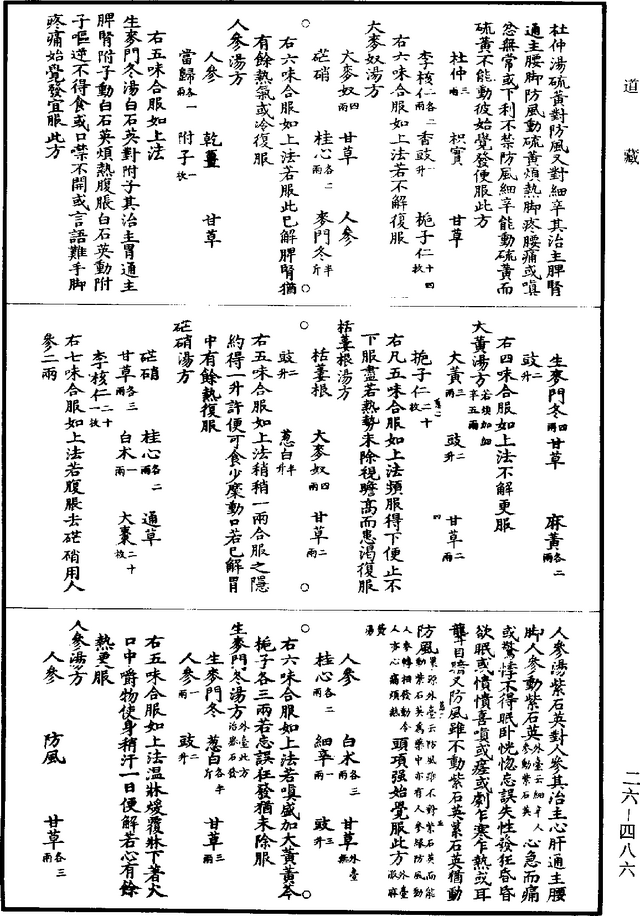 道藏
杜仲湯硫黃對防風又對細辛其治主脾腎
通主腰脚防風動硫黃煩熱脚疼腰痛或嗔
忿無常或下利不禁防風細辛能動硫黃而
硫黃不能動彼始覺發便服此方
杜仲三兩 枳實 甘草
李核仁各二兩 香豉一升 梔子仁十四枚
右六味合服如上法若不解復服
大麥奴湯方
大麥奴四兩 甘草 人參
芒硝 桂心各二兩 麥門冬半斤
右六味合服如上法若服此已解脾腎猶
有餘熱氣或冷復服
人參湯方
人參 乾薑 甘草
當歸各一兩 附子一枚
右五味合服如上法
生麥門冬湯白石英對附子其治主胃通主
脾腎附子動白石英煩熱腹脹白石英動附
子嘔逆不得食或口禁不開或言語難手脚
疼痛始覺發宜服此方
生麥門冬四兩 甘草 麻黃各二兩
豉二升
右四味合服如上法不解更服
大黃湯方若煩加細辛五兩
大黃三兩 豉二升 甘草二兩
梔子仁二十枚
右凡五味合服如上法頻服得下便止不
下服盡若熱勢未除視瞻高而患渴復服
栝蔞根湯方
栝蔞根 大麥奴四兩 甘草二兩
豉二升 葱白半升
右五味合服如上法稍稍一兩合服之隱
約得一升許便可食少糜動口若已解胃
中有餘熱復服
芒硝湯方
芒硝 桂心各二兩 通草
甘草各三兩 白朮一兩 大棗二十枚
李核仁二十一枚
右七味合服如上法若腹脹去芒硝用人
參二兩
人參湯紫石英對人參其治主心肝通主腰
脚人參動紫石英外臺云細辛人參動紫石英心急而痛
或驚悸不得眠卧恍惚忘誤失性發狂昏昏
欲眠或憒憒喜嗔或瘥或劇乍寒乍熱或耳
聾目暗又防風雖不動紫石英紫石英猶動
防風頭項强始覺服此方
人參 白朮各三兩 甘草
桂心各二兩 細辛一兩 豉三升
右六味合服如上法若嗔盛加大黃黃芩
梔子各三兩若忘誤狂發猶未除服
生麥門冬湯方外臺此方治礬石發
生麥門冬 葱白各半斤 甘草三兩
人參一兩 豉二升
右五味合服如上法温牀煖覆牀下著火
口中嚼物使身稍汗一日便解若心有餘
熱更服
人參湯方
人參 防風 甘草各三兩
二六—四八六